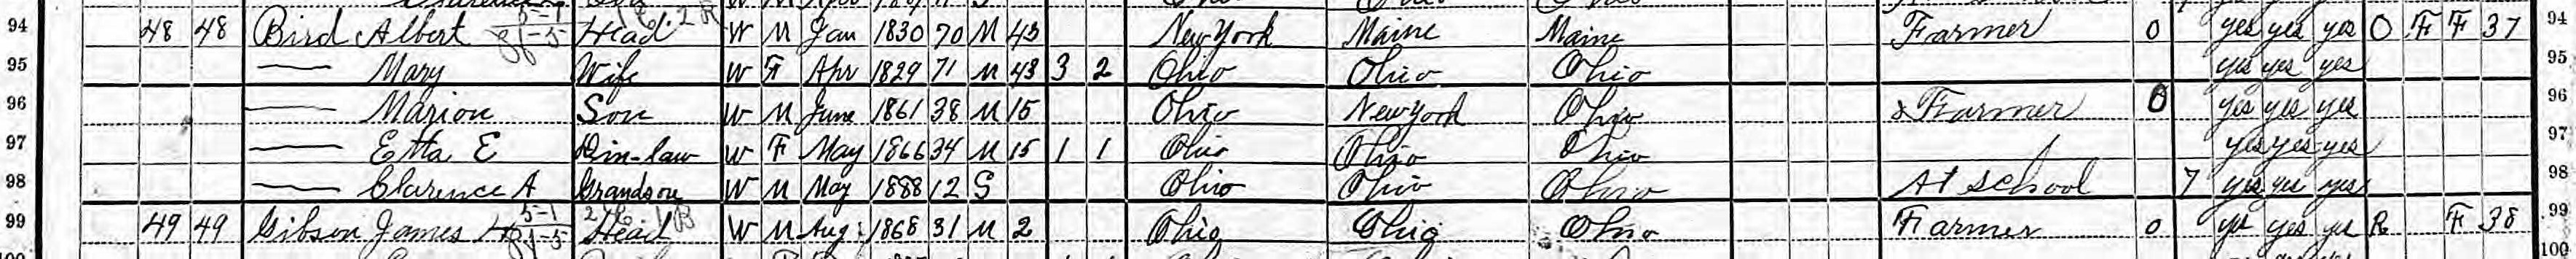 94 48 48 Bird Albert 5-1 Head W M Jan 1830 70 M 43 New York Maine Maine Farmer 0 yes yes yes O F F 37 94
95 — Mary Wife W F Apr 1829 71 M 43 3 2 Ohio Ohio Ohio yes yes yes 95
96 — Marion Son W M June 1861 38 M 15 Ohio New York Ohio Farmer 0 yes yes yes 96
97 — Etta E D in-law W F May 1866 34 M 15 1 1 Ohio Ohio Ohio yes yes yes 97
98 — Clarence A Grandson W M May 1888 12 S Ohio Ohio Ohio At School 7 yes yes yes 98
99 49 49 Gibson James 5-1 Head W M Aug 1868 31 M 2 Ohio Ohio Ohio Farmer 0 yes yes yes R F 38 99
100